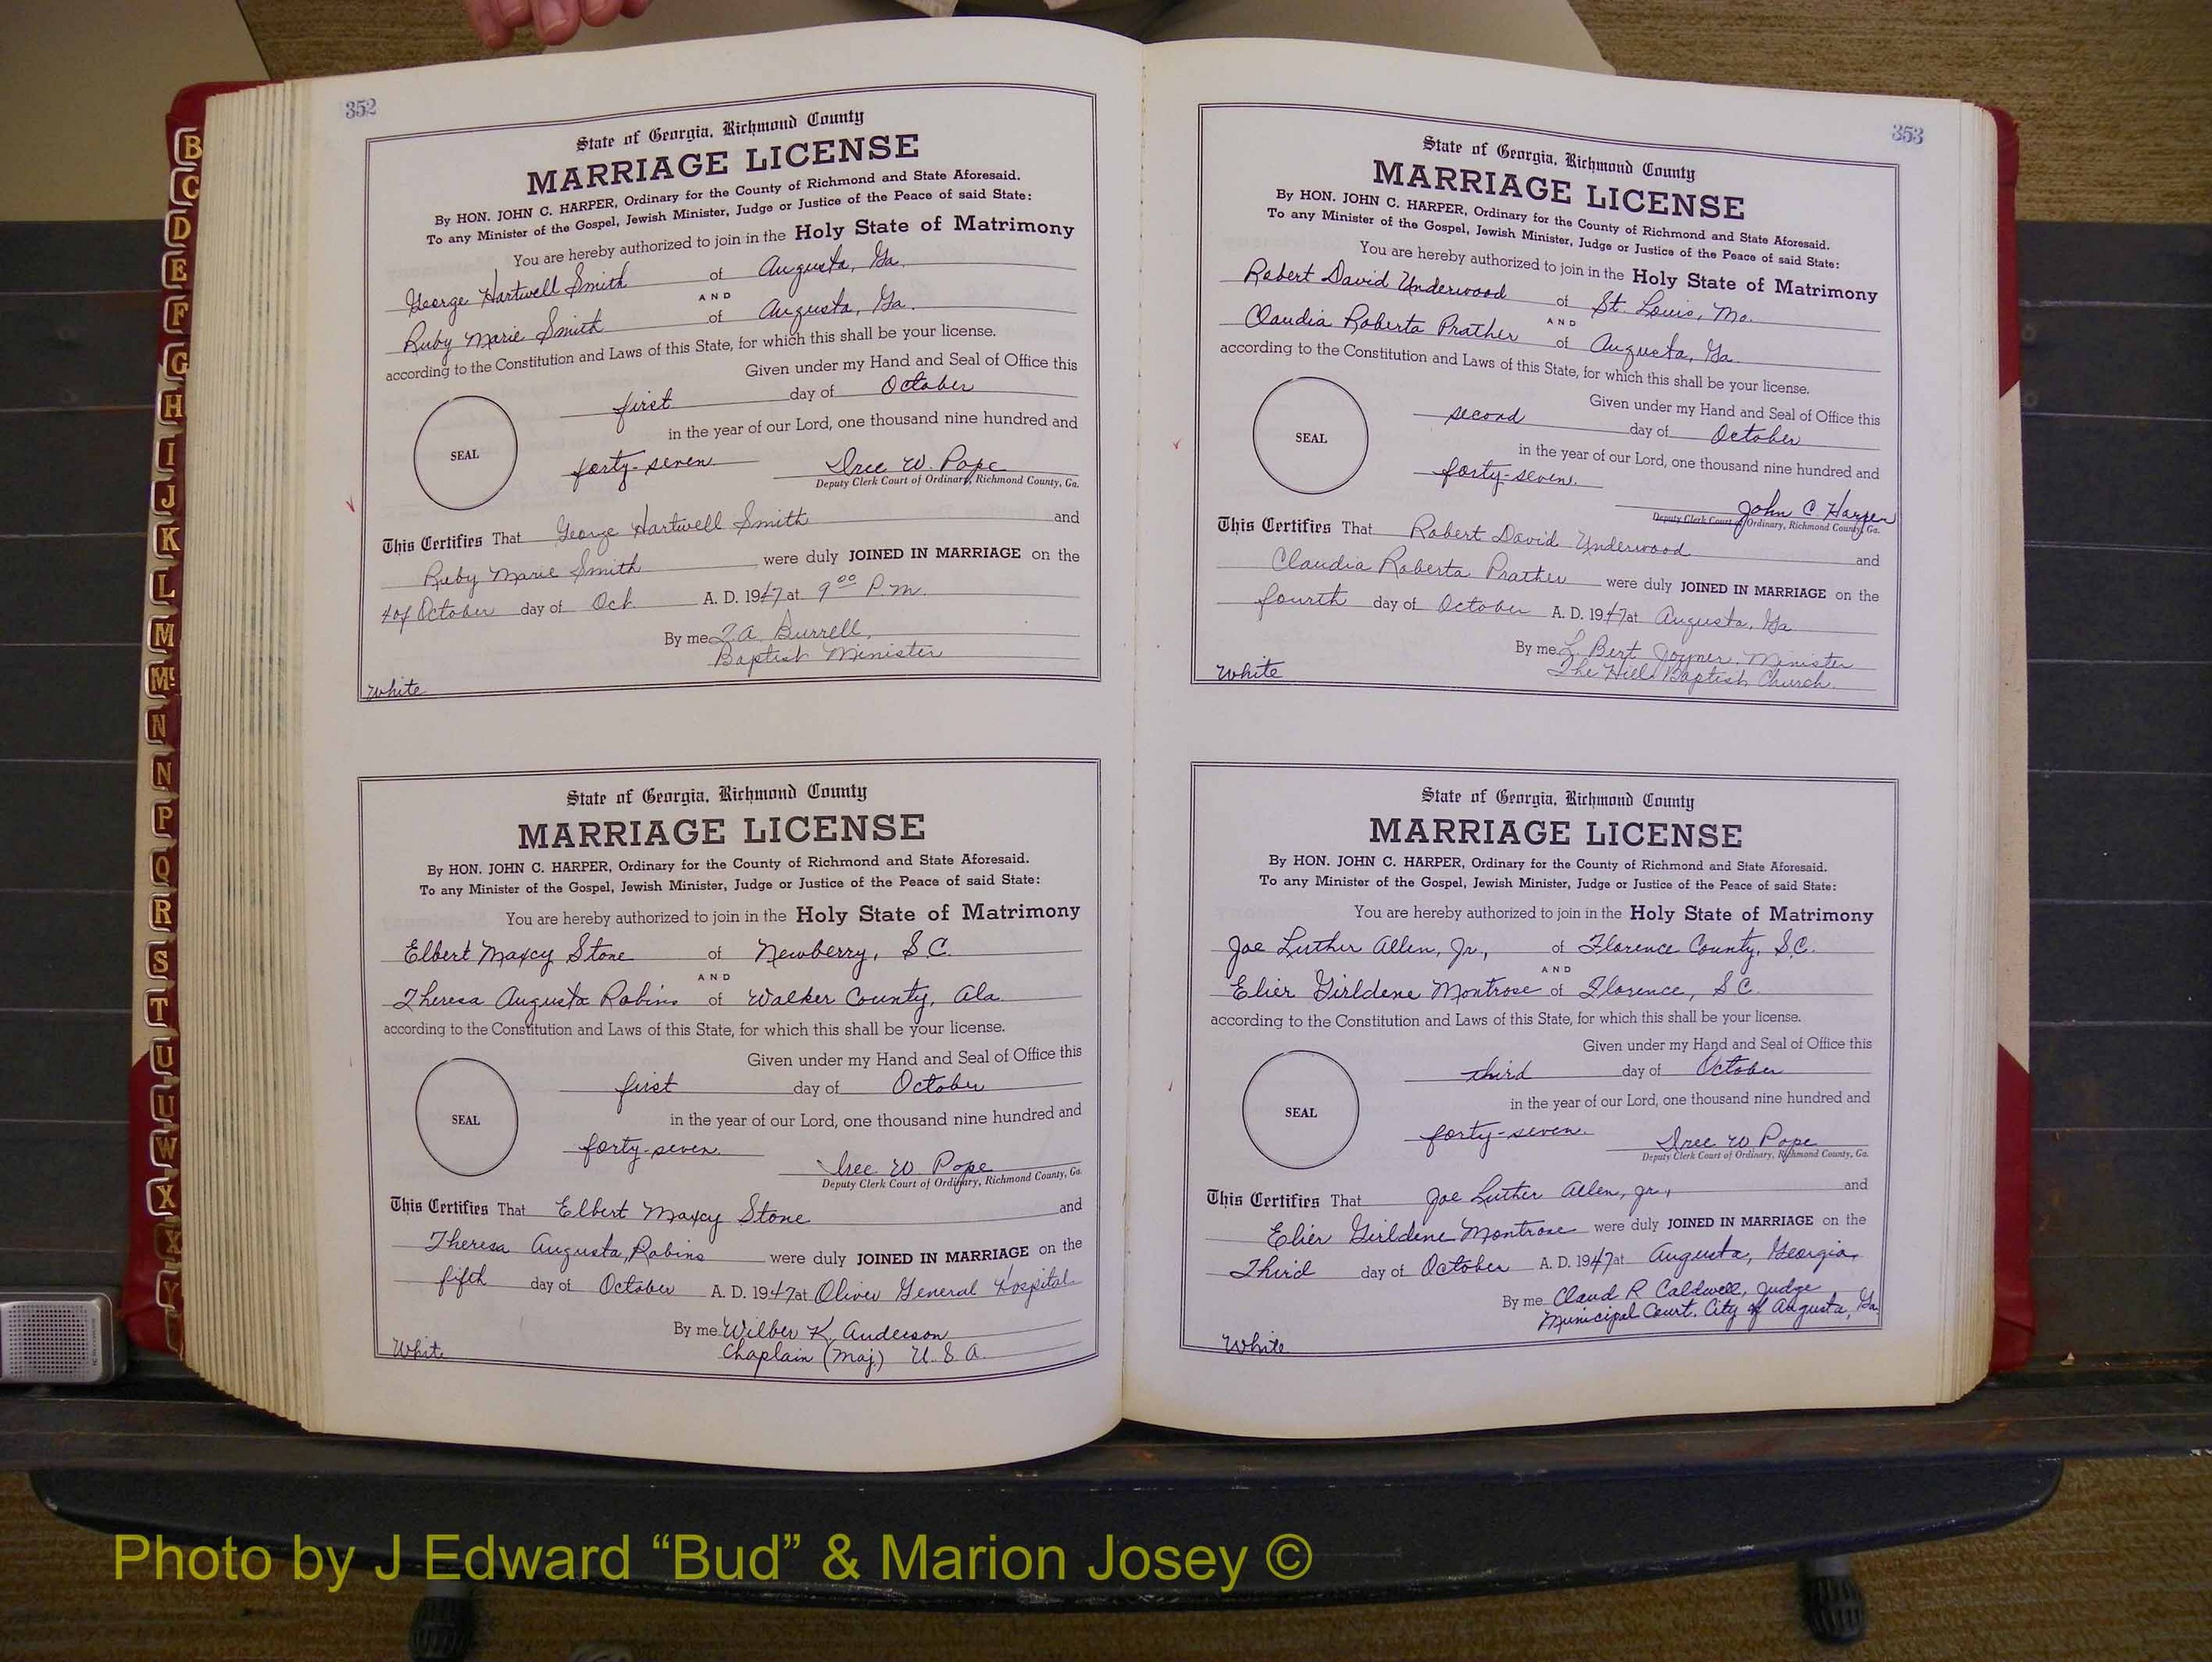 352
State of Georgia, Richmond County
MARRIAGE LICENSE
By HON. JOHN C. HARPER, Ordinary for the County of Richmond and State Aforesaid.
To any Minister of the Gospel, Jewish Minister, Judge or Justice of the Peace of said State:
You are hereby authorized to join in the Holy State of Matrimony
George Hartwell Smith of Augusta, Ga.
AND
Ruby Marie Smith of Augusta, Ga.
according to the Constitution and Laws of this State, for which this shall be your license.
Given under my Hand and Seal of Office this
first day of October
in the year of our Lord, one thousand nine hundred and
SEAL
forty-seven W. Pope
Deputy Clerk Court of Ordinary, Richmond County, Ga.
This Certifies That George Hartwell Smith and
Ruby Marie Smith were duly JOINED IN MARRIAGE on the
October day of Oct. A. D. 1947 at 9 00 P.m.
By me Burrell,
Baptist Minister
White
State of Georgia, Richmond County
MARRIAGE LICENSE
By HON. JOHN C. HARPER, Ordinary for the County of Richmond and State Aforesaid.
To any Minister of the Gospel, Jewish Minister, Judge or Justice of the Peace of said State:
You are hereby authorized to join in the Holy State of Matrimony
Elbert Maxcy Stone of Newberry, S.C.
AND
Theresa Augusta Robins of Walker County, Ala
according to the Constitution and Laws of this State, for which this shall be your license.
Given under my Hand and Seal of Office this
first day of October
in the year of our Lord, one thousand nine hundred and
SEAL
forty-seven. W. Pope
Deputy Clerk Court of Ordinary, Richmond County, Ga.
This Certifies That Elbert Maxcy Stone and
Theresa Augusta Robins were duly JOINED IN MARRIAGE on the
fifth day of October A. D. 1947 at Oliver General Hospital
By me Wilber K. Anderson
Chaplain (Maj.) U.S.A.
White
353
State of Georgia, Richmond County
MARRIAGE LICENSE
By HON. JOHN C. HARPER, Ordinary for the County of Richmond and State Aforesaid.
To any Minister of the Gospel, Jewish Minister, Judge or Justice of the Peace of said State:
You are hereby authorized to join in the Holy State of Matrimony
Robert David Underwood of St. Louis, Mo.
AND
Claudia Roberta Prather of Augusta, Ga.
according to the Constitution and Laws of this State, for which this shall be your license.
Given under my Hand and Seal of Office this
second day of October
in the year of our Lord, one thousand nine hundred and
SEAL
forty-seven.
John C. Harper
Deputy Clerk Court of Ordinary, Richmond County, Ga.
This Certifies That Robert David Underwood and
Claudia Roberta Prather were duly JOINED IN MARRIAGE on the
fourth day of October A. D. 1947 at Augusta, Ga
By me L. Bert Joyner, Minister
The Hill Baptist Church.
White
State of Georgia, Richmond County
MARRIAGE LICENSE
By HON. JOHN C. HARPER, Ordinary for the County of Richmond and State Aforesaid.
To any Minister of the Gospel, Jewish Minister, Judge or Justice of the Peace of said State:
You are hereby authorized to join in the Holy State of Matrimony
Joe Luther Allen, Jr., of Florence County, S.C.
AND
Elier Girldene Montrose of Florence, S.C.
according to the Constitution and Laws of this State, for which this shall be your license.
Given under my Hand and Seal of Office this
third day of October
in the year of our Lord, one thousand nine hundred and
SEAL
forty-seven. W Pope
Deputy Clerk Court of Ordinary, Richmond County, Ga.
This Certifies That Joe Luther Allen, Jr., and
Elier Girldene Montrose were duly JOINED IN MARRIAGE on the
Third day of October A. D. 1947 at Augusta, Georgia,
By me Claud R Caldwell, Judge
Municipal Court, City of Augusta, Ga.
White
B
C
D
E
F
G
H
I
J
K
L
M
Mc
N
N
P
Q
R
S
T
U
U
W
X
X
Y
Photo by J Edward “Bud” & Marion Josey ©